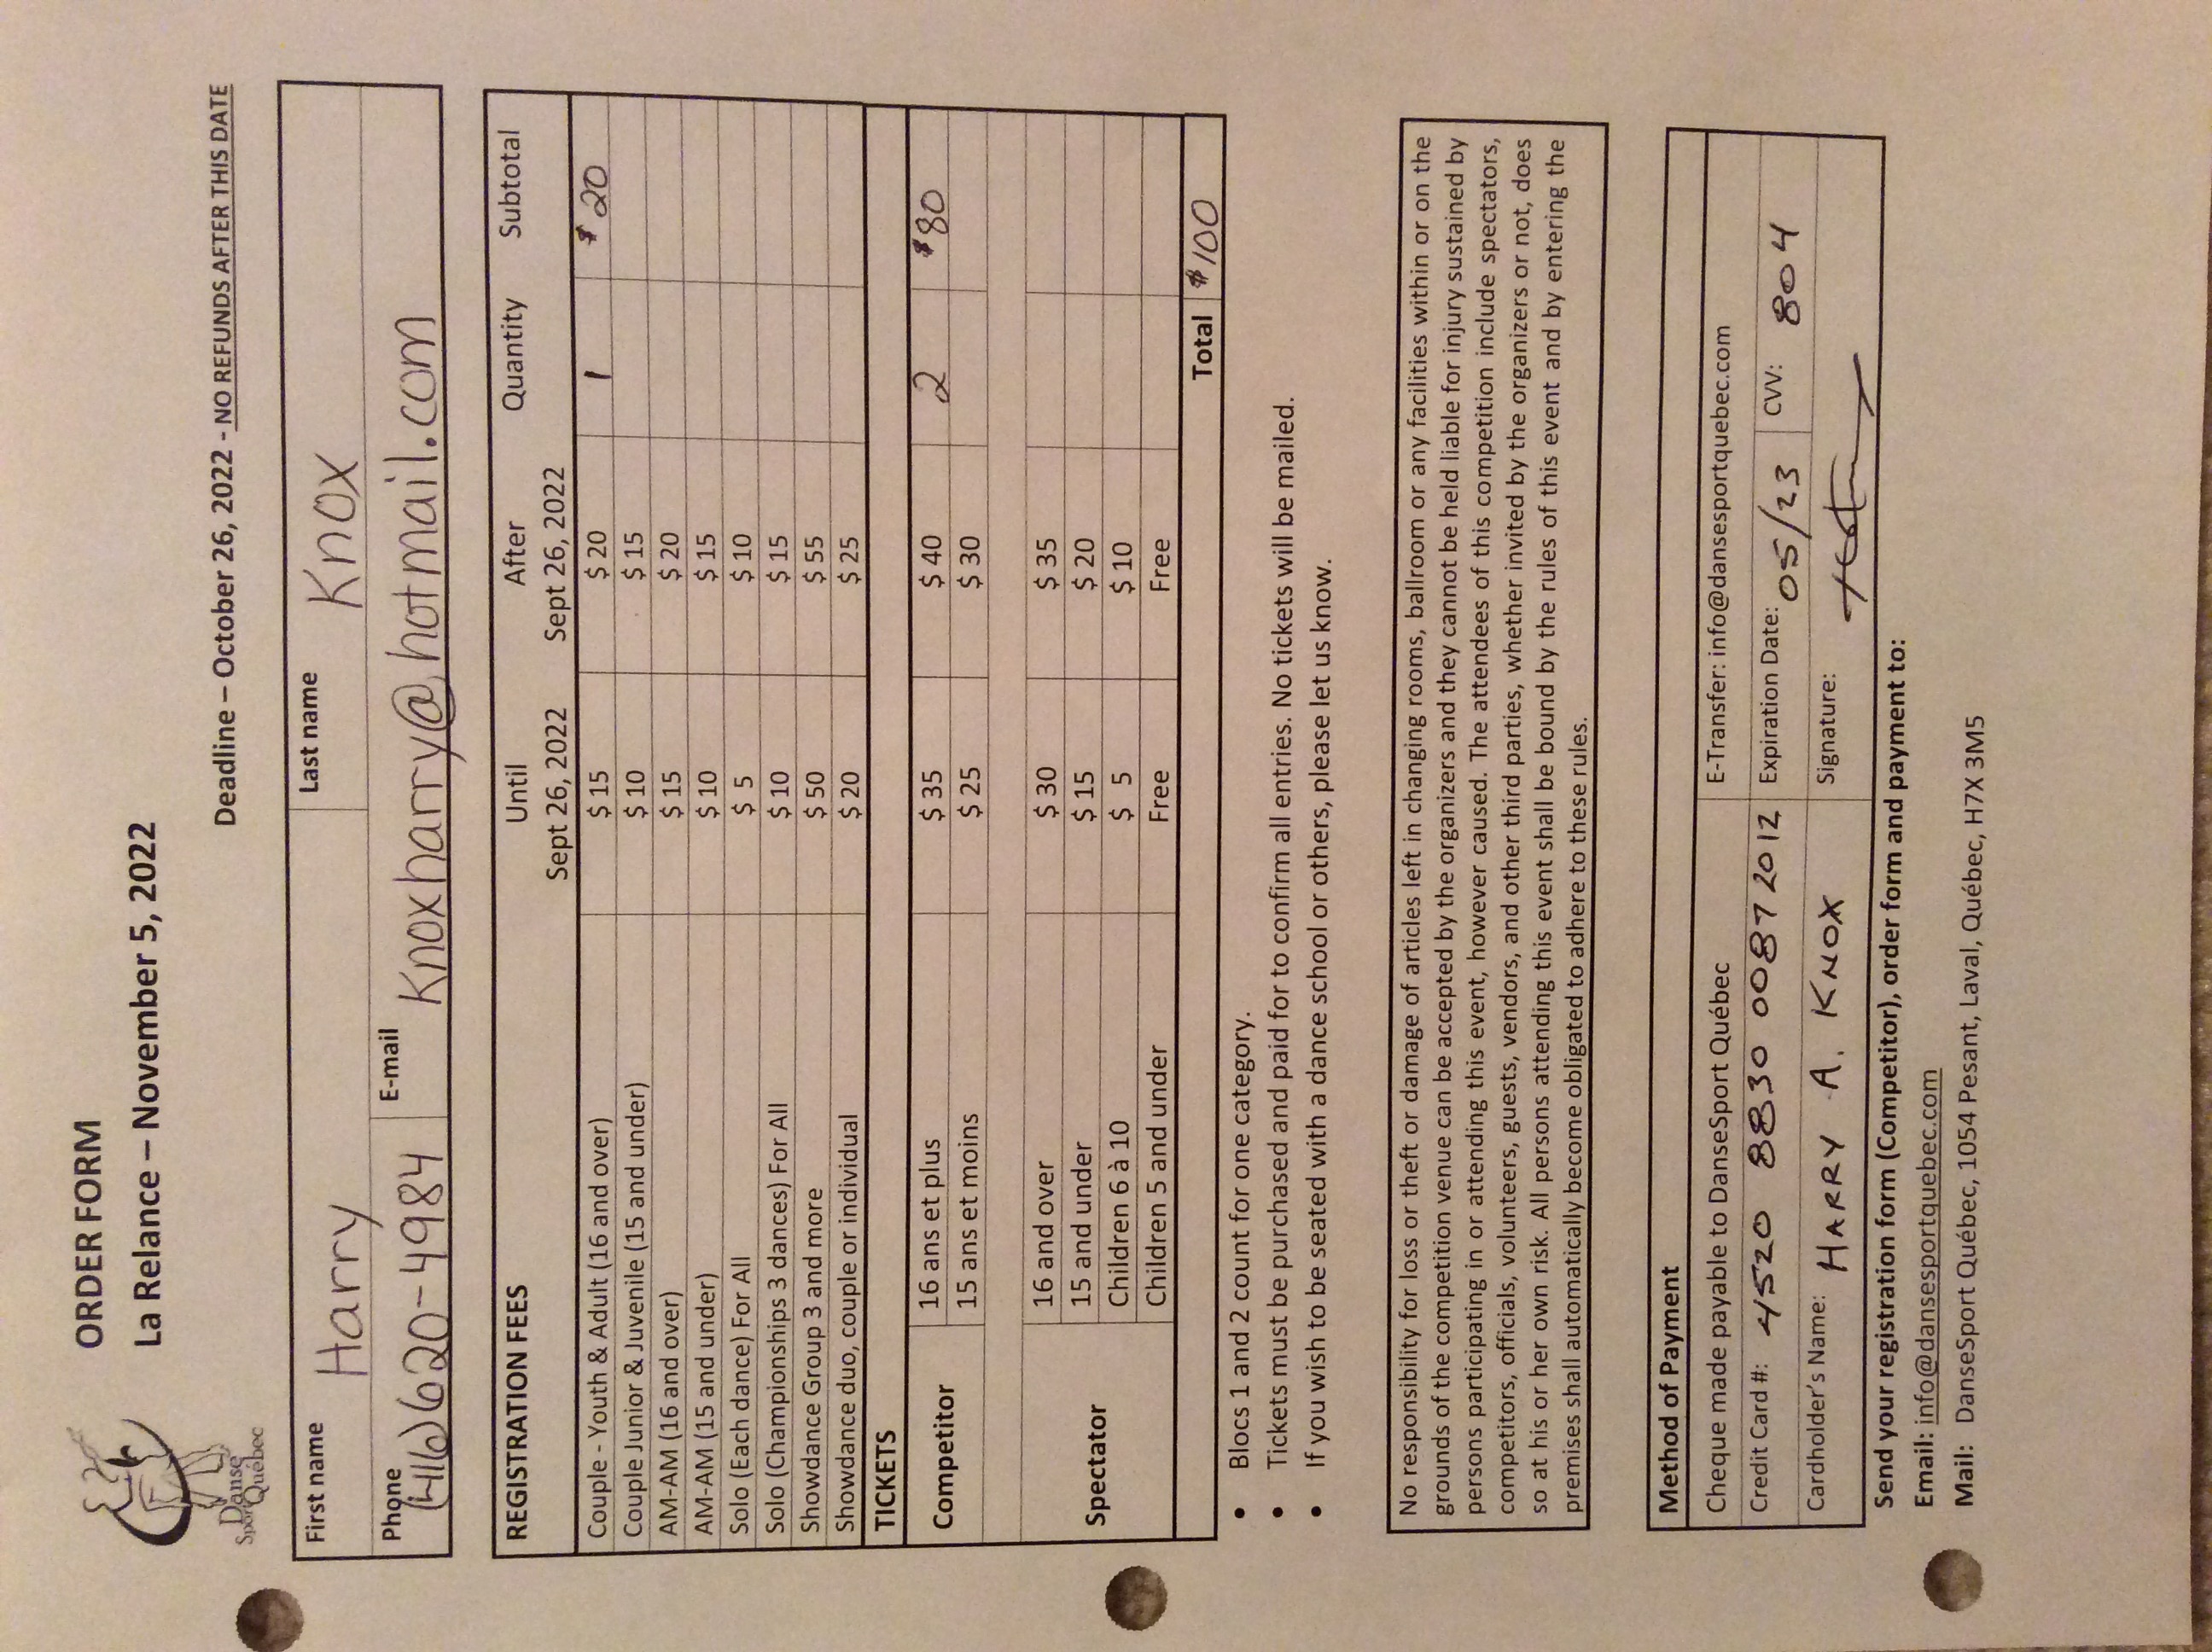 Danse
Sport Québec
ORDER FORM
La Relance – November 5, 2022
Deadline – October 26, 2022 - NO REFUNDS AFTER THIS DATE
First name Harry Last name Knox
Phone (416) 620-4984 E-mail Knoxharry@hotmail.com
REGISTRATION FEES Until Sept 26, 2022 After Sept 26, 2022 Quantity Subtotal
Couple - Youth & Adult (16 and over) $ 15 $ 20 1 $ 20
Couple Junior & Juvenile (15 and under) $ 10 $ 15
AM-AM (16 and over) $ 15 $ 20
AM-AM (15 and under) $ 10 $ 15
Solo (Each dance) For All $ 5 $ 10
Solo (Championships 3 dances) For All $ 10 $ 15
Showdance Group 3 and more $ 50 $ 55
Showdance duo, couple or individual $ 20 $ 25
TICKETS
Competitor
16 ans et plus $ 35 $ 40 2 $80
15 ans et moins $ 25 $ 30
Spectator
16 and over $ 30 $ 35
15 and under $ 15 $ 20
Children 6 à 10 $ 5 $ 10
Children 5 and under Free Free
Total $100
• Blocs 1 and 2 count for one category.
• Tickets must be purchased and paid for to confirm all entries. No tickets will be mailed.
• If you wish to be seated with a dance school or others, please let us know.
No responsibility for loss or theft or damage of articles left in changing rooms, ballroom or any facilities within or on the
grounds of the competition venue can be accepted by the organizers and they cannot be held liable for injury sustained by
persons participating in or attending this event, however caused. The attendees of this competition include spectators,
competitors, officials, volunteers, guests, vendors, and other third parties, whether invited by the organizers or not, does
so at his or her own risk. All persons attending this event shall be bound by the rules of this event and by entering the
premises shall automatically become obligated to adhere to these rules.
Method of Payment
Cheque made payable to DanseSport Québec E-Transfer: info@dansesportquebec.com
Credit Card #: 4520 8830 0087 2012 Expiration Date: 05/23 CVV: 804
Cardholder's Name: HARRY A. KNOX Signature:
Send your registration form (Competitor), order form and payment to:
Email: info@dansesportquebec.com
Mail: DanseSport Québec, 1054 Pesant, Laval, Québec, H7X 3M5